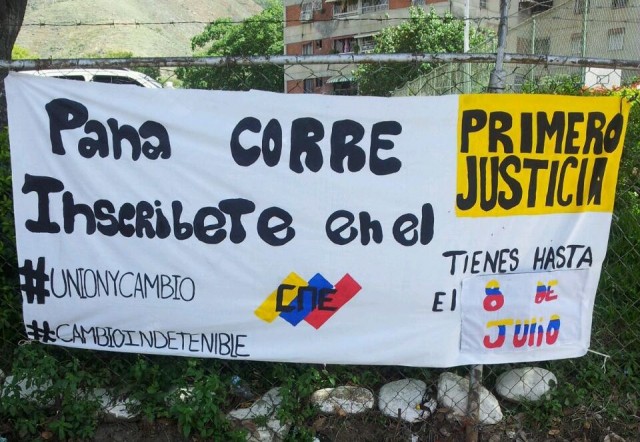 Pana CORRE
Inscribete en el
#UNIONYCAMBIO
CNE
#CAMBIOINDETENIBLE
PRIMERO
JUSTICIA
TIENES HASTA
El 8 DE
JULIO